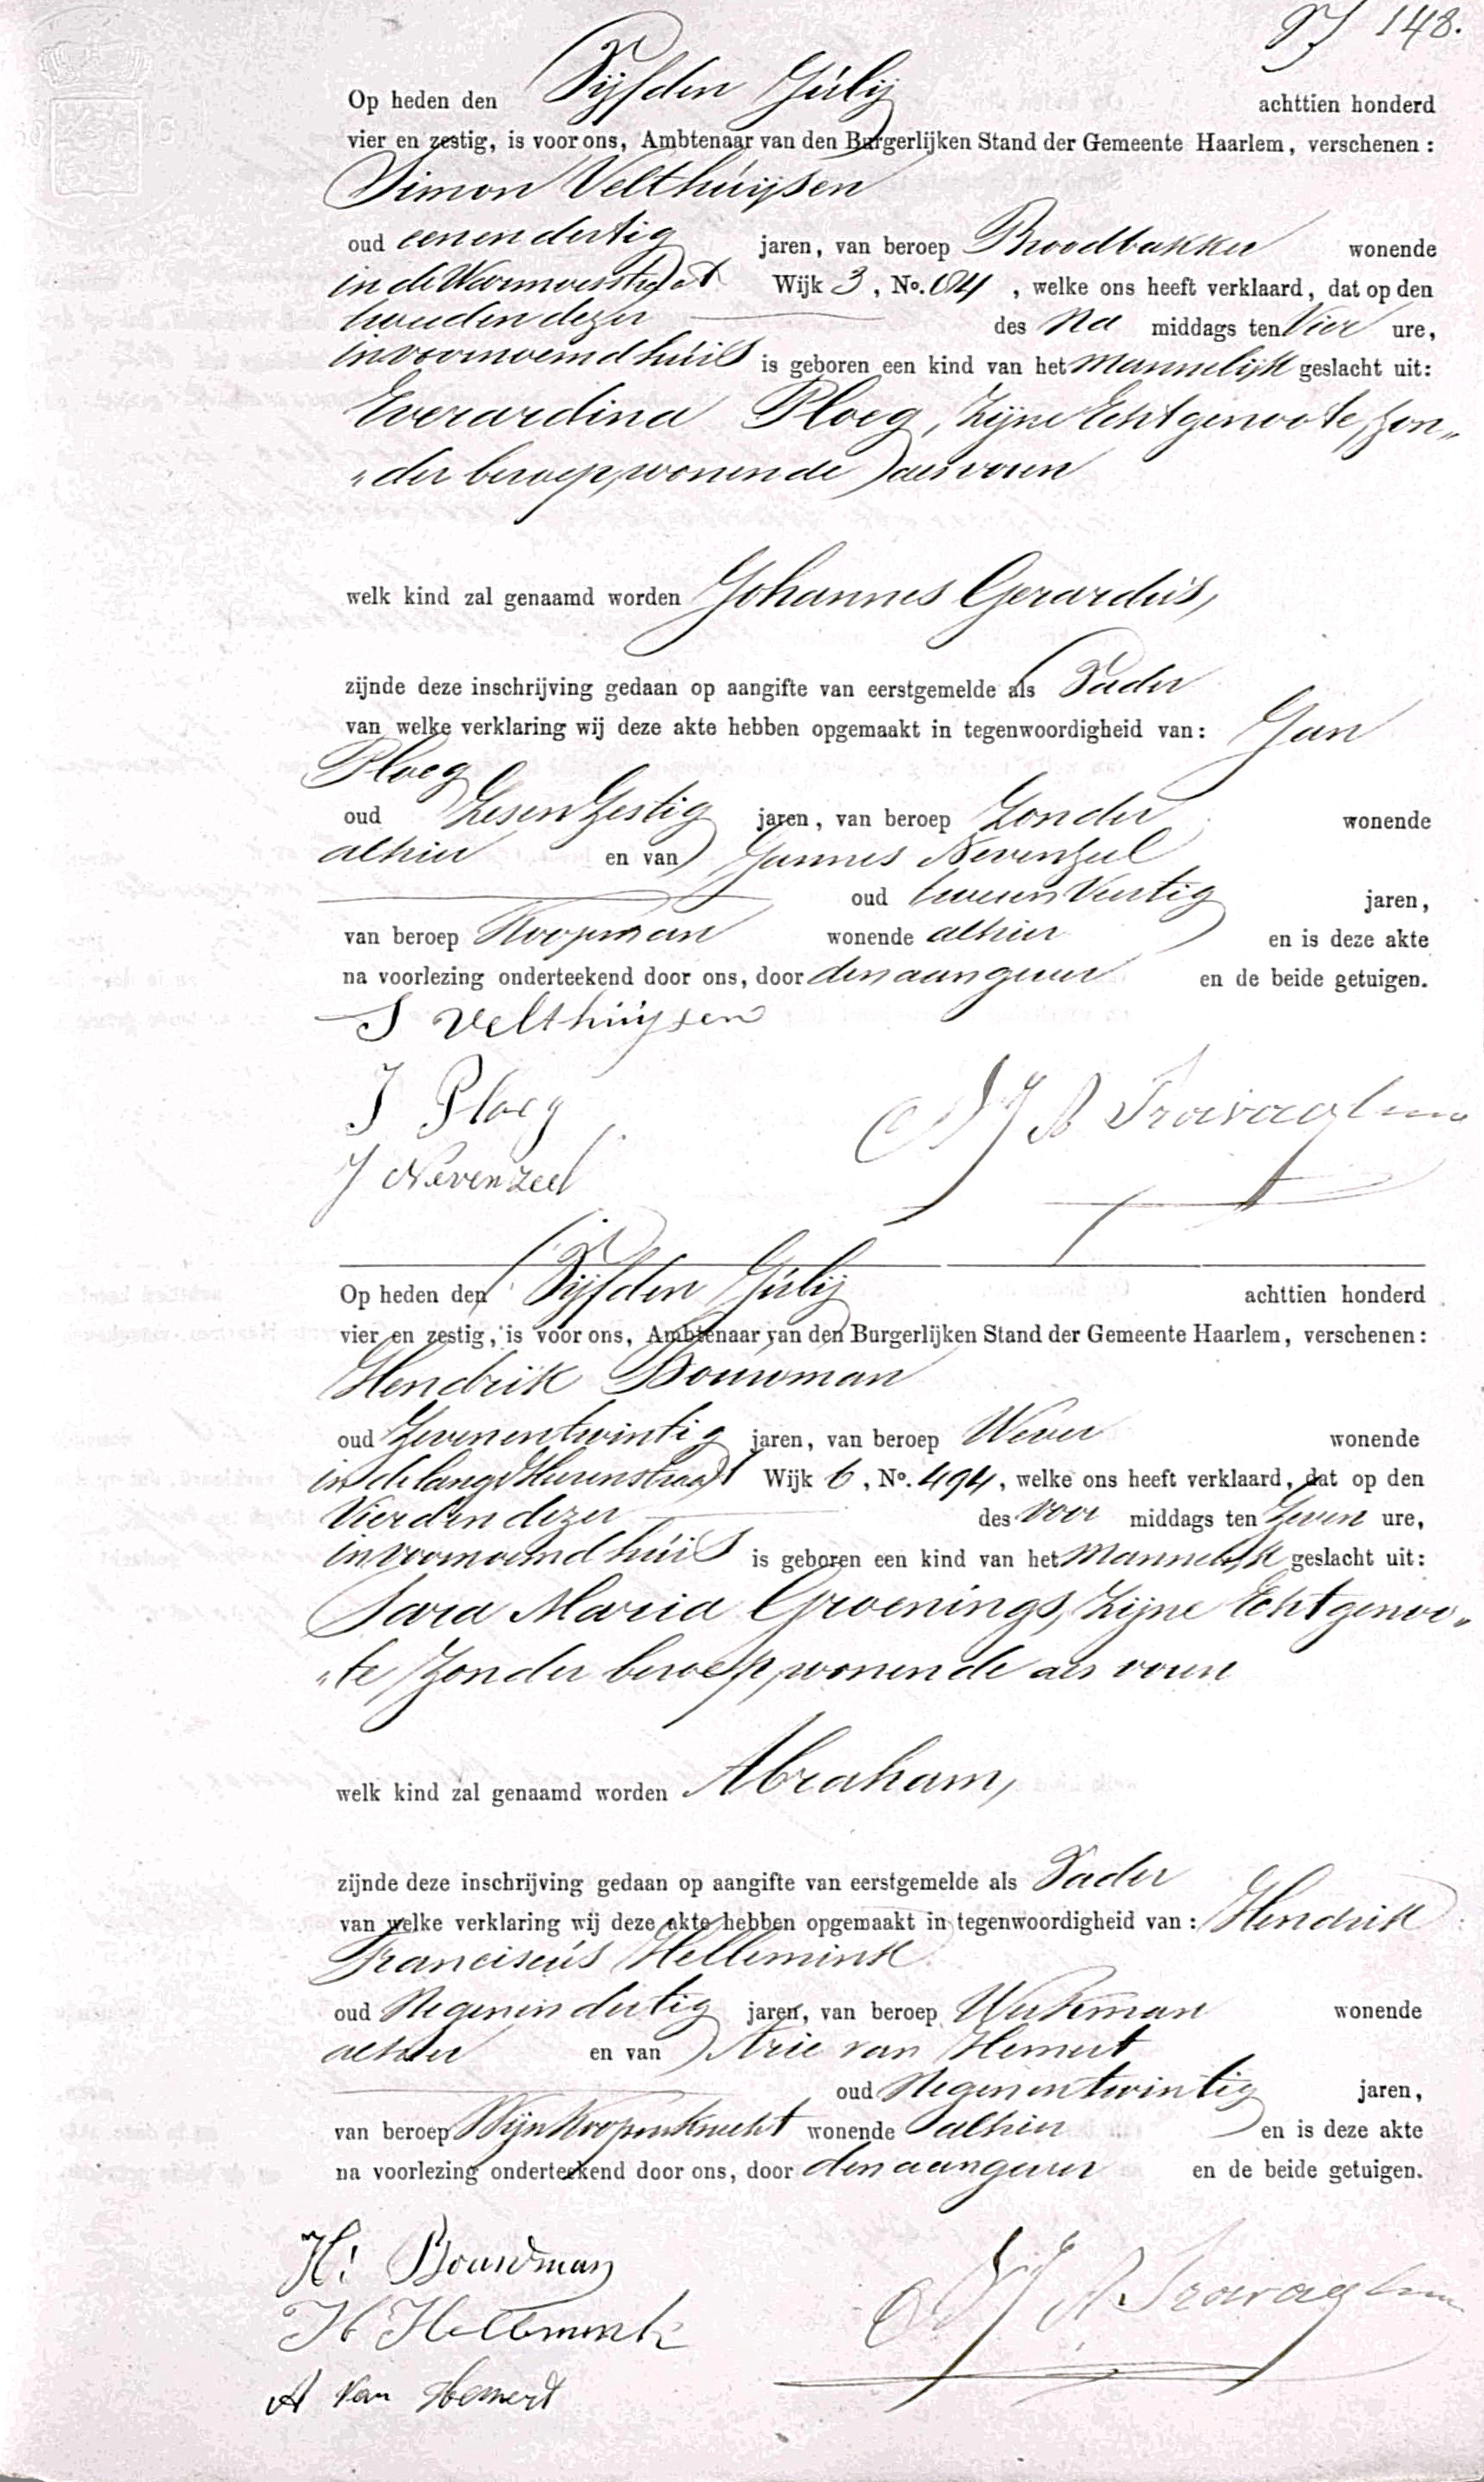 148.
Op heden den Vijfden Julij achttien honderd
vier en zestig, is voor ons, Ambtenaar van den Burgerlijken Stand der Gemeente Haarlem, verschenen:
Simon Velthuijsen
oud eenendertig jaren, van beroep Broodbakker wonende
in de Warmoesstraat Wijk 3, No. , welke ons heeft verklaard, dat op den
dezer des Na middags ten Vier ure,
in voornoemd huis is geboren een kind van het Mannelijk geslacht uit:
Everardina Ploeg, Zijne Echtgenoote, zon„
„der beroep, wonende als voren
welk kind zal genaamd worden Johannes Gerardus,
zijnde deze inschrijving gedaan op aangifte van eerstgemelde als Vader
van welke verklaring wij deze akte hebben opgemaakt in tegenwoordigheid van: Jan
Ploeg
oud Zesenzestig jaren, van beroep Zonder wonende
alhier en van Jannes Nevenzeel
oud tweeenveertig jaren,
van beroep Koopman wonende alhier en is deze akte
na voorlezing onderteekend door ons, door den aangever en de beide getuigen.
S Velthuijsen
J Ploeg
J Nevenzeel
Op heden den Vijfden Julij achttien honderd
vier en zestig, is voor ons, Ambtenaar van den Burgerlijken Stand der Gemeente Haarlem, verschenen:
Hendrik Bouwman
oud Zevenentwintig jaren, van beroep Wever wonende
in de lange Heerenstraat Wijk 6, No. 494, welke ons heeft verklaard, dat op den
Vierden dezer des voor middags ten Zeven ure,
in voornoemd huis is geboren een kind van het Mannelijk geslacht uit:
Sara Maria Groenings, Zijne Echtgenoo„
„te, Zonder beroep, wonende als voren
welk kind zal genaamd worden Abraham,
zijnde deze inschrijving gedaan op aangifte van eerstgemelde als Vader
van welke verklaring wij deze akte hebben opgemaakt in tegenwoordigheid van: Hendrik
Franciscus Hellemink
oud Negenendertig jaren, van beroep Werkman wonende
alhier en van Arie van Hemert
oud Negenentwintig jaren,
van beroep Wijnkoopersknecht wonende alhier en is deze akte
na voorlezing onderteekend door ons, door den aangever en de beide getuigen.
H: Bouwman
H Hellemink
A van Hemert